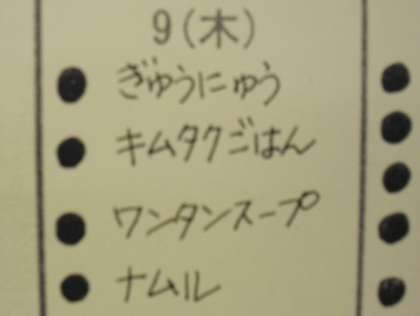 9(木)
ぎゅうにゅう
キムタクごはん
ワンタンスープ
ナムル